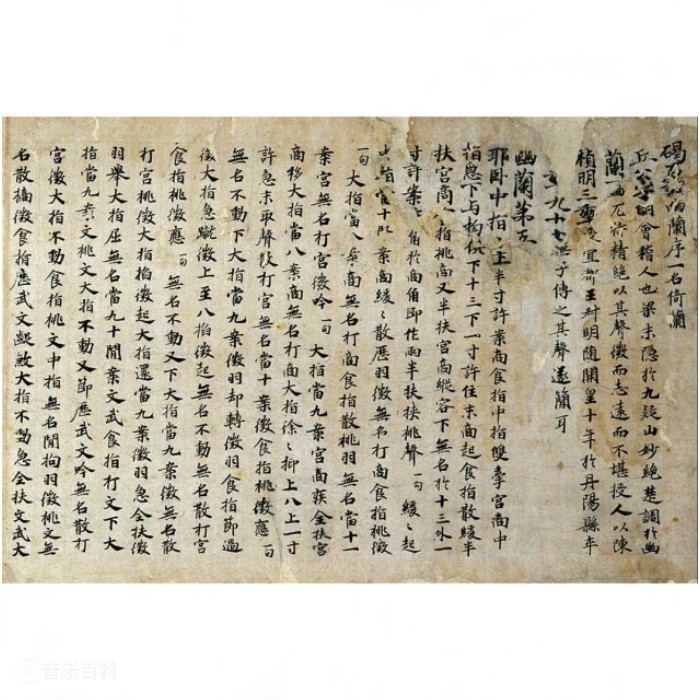 碣石調幽蘭序一名倚蘭
丘公字明會稽人也梁末隱於九疑山妙絕楚調於幽
蘭一曲尤特精絕以其聲微而志遠而不堪授人以陳
禎明三年授宜都王叔明隨開皇十年於丹陽縣卒
年九十七無子傳之其聲遂簡耳
幽蘭第五
耶臥中指十上半寸許案商食指中指雙牽宮商中
指急下与拘俱下十三下一寸許住末商起食指散緩半
扶宮商食指挑商又半扶宮商縱容下無名於十三外一
寸許案商角於商角即作兩半扶挾挑聲一句緩〻起
無名指當十 案商緩〻散歷羽徵無名打商食指挑徵
一句 大指當八案商無名打商食指散挑羽無名當十一
案宮無名打宮徵吟 一句 大指當九案宮商疾全扶宮
商移大指當八案商無名打商大指徐〻抑上八上一寸
許急末取聲散打宮無名當十案徵食指挑徵應 一句
無名不動下大指當九案徵羽却轉徵羽食指節過
徵大指急蹴徵上至八指徵起無名不動無名散打宮
食指挑徵應 一句 無名不動又下大指當九案徵無名散
打宮挑徵大指掐徵起大指還當九案徵羽急全扶徵
羽舉大指屈無名當九十間案文武食指打文下大
指當九案文挑文大指不動又節歷武文吟無名散打
宮徵大指不動食指挑文中指無名間拘羽徵挑文無
名散摘徵食指歷武文蹴鮫大指不動急全扶文武大
音乐百科